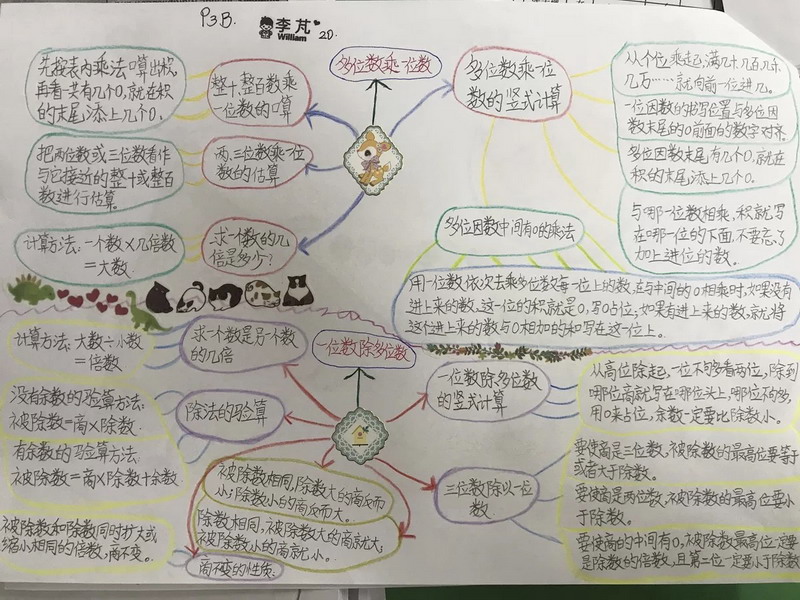 P3B.
李芃
William
2D.
多位数乘一位数
先按表内乘法口算出积,
再看一共有几个0,就在积
的末尾添上几个0.
整十、整百数乘
一位数的口算
把两位数或三位数看作
与它接近的整十或整百
数进行估算.
两、三位数乘一位
数的估算
计算方法:一个数×几倍数
=大数.
求一个数的几
倍是多少?
多位数乘一位
数的竖式计算
从个位乘起,满几十几百几千
几万……就向前一位进几。
一位因数的书写位置与多位因
数末尾的0前面的数字对齐.
多位因数末尾有几个0,就在
积的末尾添上几个0.
与哪一位数相乘,积就写
在哪一位的下面,不要忘了
加上进位的数.
多位因数中间有0的乘法
用一位数依次去乘多位数每一位上的数,在与中间的0相乘时,如果没有
进上来的数,这一位的积就是0,写0占位;如果有进上来的数,就将
这个进上来的数与0相加的和写在这一位上。
一位数除多位数
计算方法:大数÷小数
=倍数
求一个数是另一个数
的几倍
没有余数的验算方法:
被除数=商×除数.
有余数的验算方法:
被除数=商×除数+余数
除法的验算
被除数和除数同时扩大或
缩小相同的倍数,商不变。
商不变的性质:
被除数相同,除数大的商反而
小;除数小的商反而大。
除数相同,被除数大的商就大;
被除数小的商就小。
一位数除多位数
的竖式计算
从高位除起,一位不够看两位,除到
哪位商就写在哪位头上,哪位不够,
用0来占位,余数一定要比除数小。
三位数除以一位
数.
要使商是三位数,被除数的最高位要等于
或者大于除数。
要使商是两位数,被除数的最高位要小
于除数。
要使商的中间有0,被除数最高位一定要
是除数的倍数,且第二位一定要小于除数